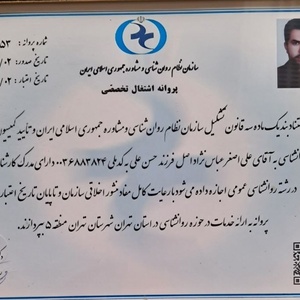 شماره پروانه : ۵۳
تاریخ صدور : ۰۲/
تاریخ اعتبار : ۰۲/
سازمان نظام روان شناسی و مشاوره جمهوری اسلامی ایران
پروانه اشتغال تخصصی
ناد بند یک ماده سه قانون تشکیل سازمان نظام روان شناسی و مشاوره جمهوری اسلامی ایران و تایید کمیسیو
شناسی به آقای علی اصغر عباس نژاد اصل فرزند حسن علی به کد ملی ۰۰۳۶۸۸۳۸۲۴ دارای مدرک کارشنا
در رشته روانشناسی عمومی اجازه داده می شود با رعایت کامل مفاد نشور اخلاقی سازمان و تا پایان تاریخ اعتبار
پروانه به ارائه خدمات در حوزه روانشناسی در استان تهران شهرستان تهران منطقه ۵ بپردازند.